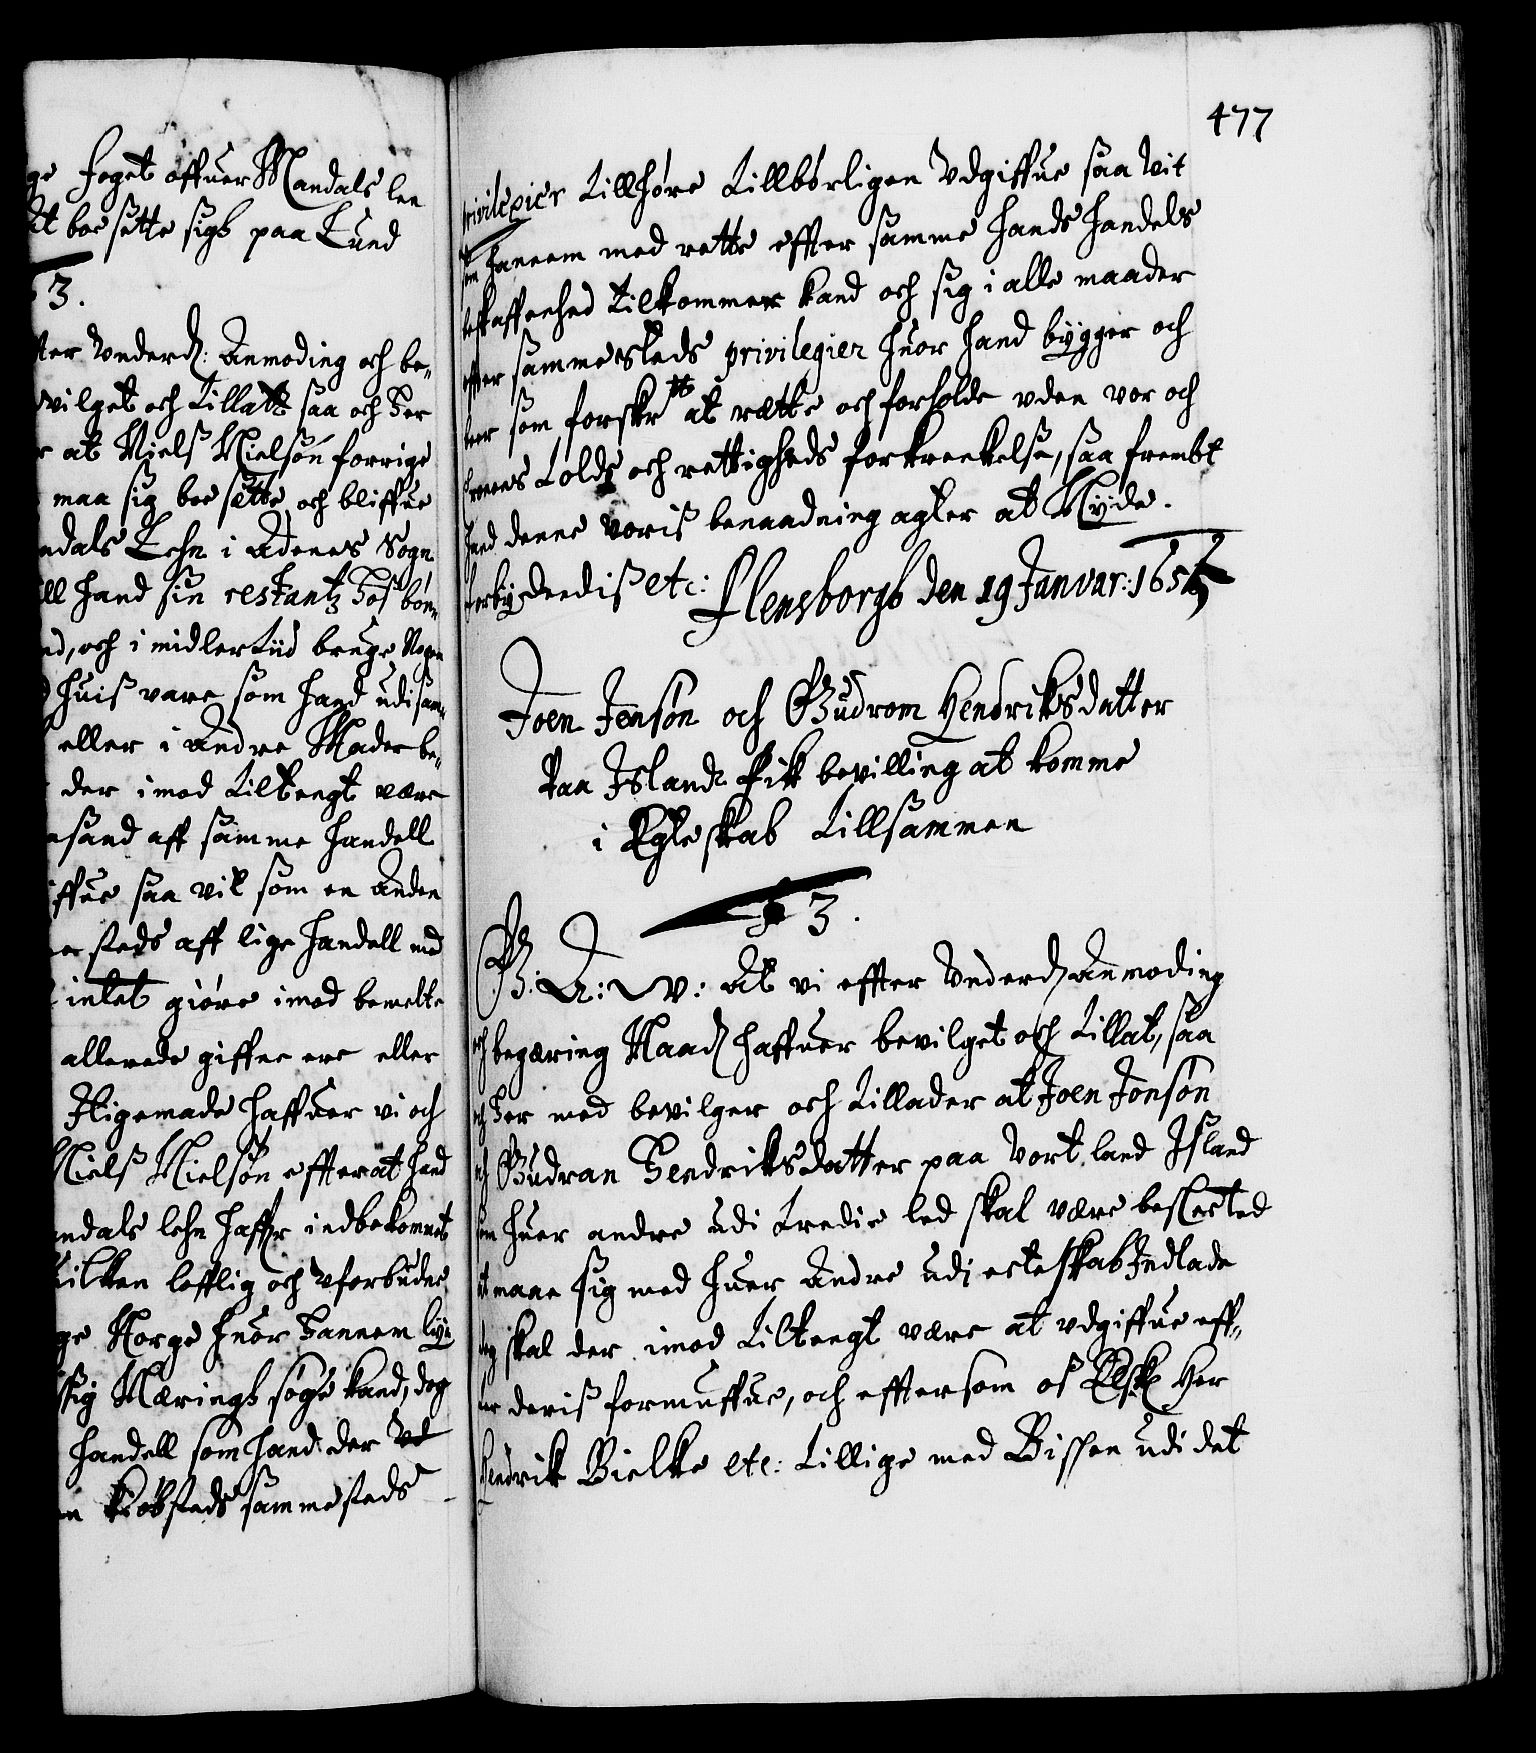 ge Foget offuer Mandals len
at boe sette sigh paa Lund
3.
ter Underd: Anmoding och be-
vilget och tilladt saa och her
at Niels Nielsøn forrige
maa sig boe sætte och bliffue
ndals Lehn i Adenes Sogn
ill hand sin restantz hos bøn
ud, och i midlertiid bruge Nogen
huis vare som hand udi sam-
eller i andre Mader be-
der imod tiltengt være
sand aff samme handell
iffue saa vil som en Anden
steds aff lige handell med
intet giøre imod bemelte
allerede giffen ere eller
Itligemade haffuer vi och
Niels Nielsøn effter at hand
ndals lehn haffr indbekommet
uilken lofflig och Uforbuden
ge Norge huor hannem
sig Næringh søge kand, dog
handell som hand der
Kiøbsteds sammesteds
477
privilegier tillhøre tillbørligen Udgiffue saa vit
som hannem med rette effter samme hands handels
beskaffenhed tilkommer kand och sig i alle maader
effter sammesteds privilegier huor hand bygger och
boer som forskr tt at rætte och forholde uden vor och
Cronens Tolds och rettigheds forkrenkelse, saa frembt
hand denne voris benaadning agter at Nyde.
Forbiudendis etc: Flensborgh den 19 Januar: 165
Joen Jensøn och Gudrom Hendriksdatter
paa Island Fik bevilling at komme
i Egteskab tillsammen
3.
G: A: W: At vi effter Underd Anmoding
och begæring Naad haffuer bevilget och tillat, saa
och her med bevilger och tillader at Joen Jonsøn
och Gudran Hendriksdatter paa Vort land Island
som huer andre udi tredie led skal være beslected
at maae sig med huer Andre udi ecteskab Indlade
dog skal der imod tiltengt være at udgiffue eff-
ter deris formuffue, och effter som os Elsk Her
Hendrik Bielke etc: tillige med Bispen udi det